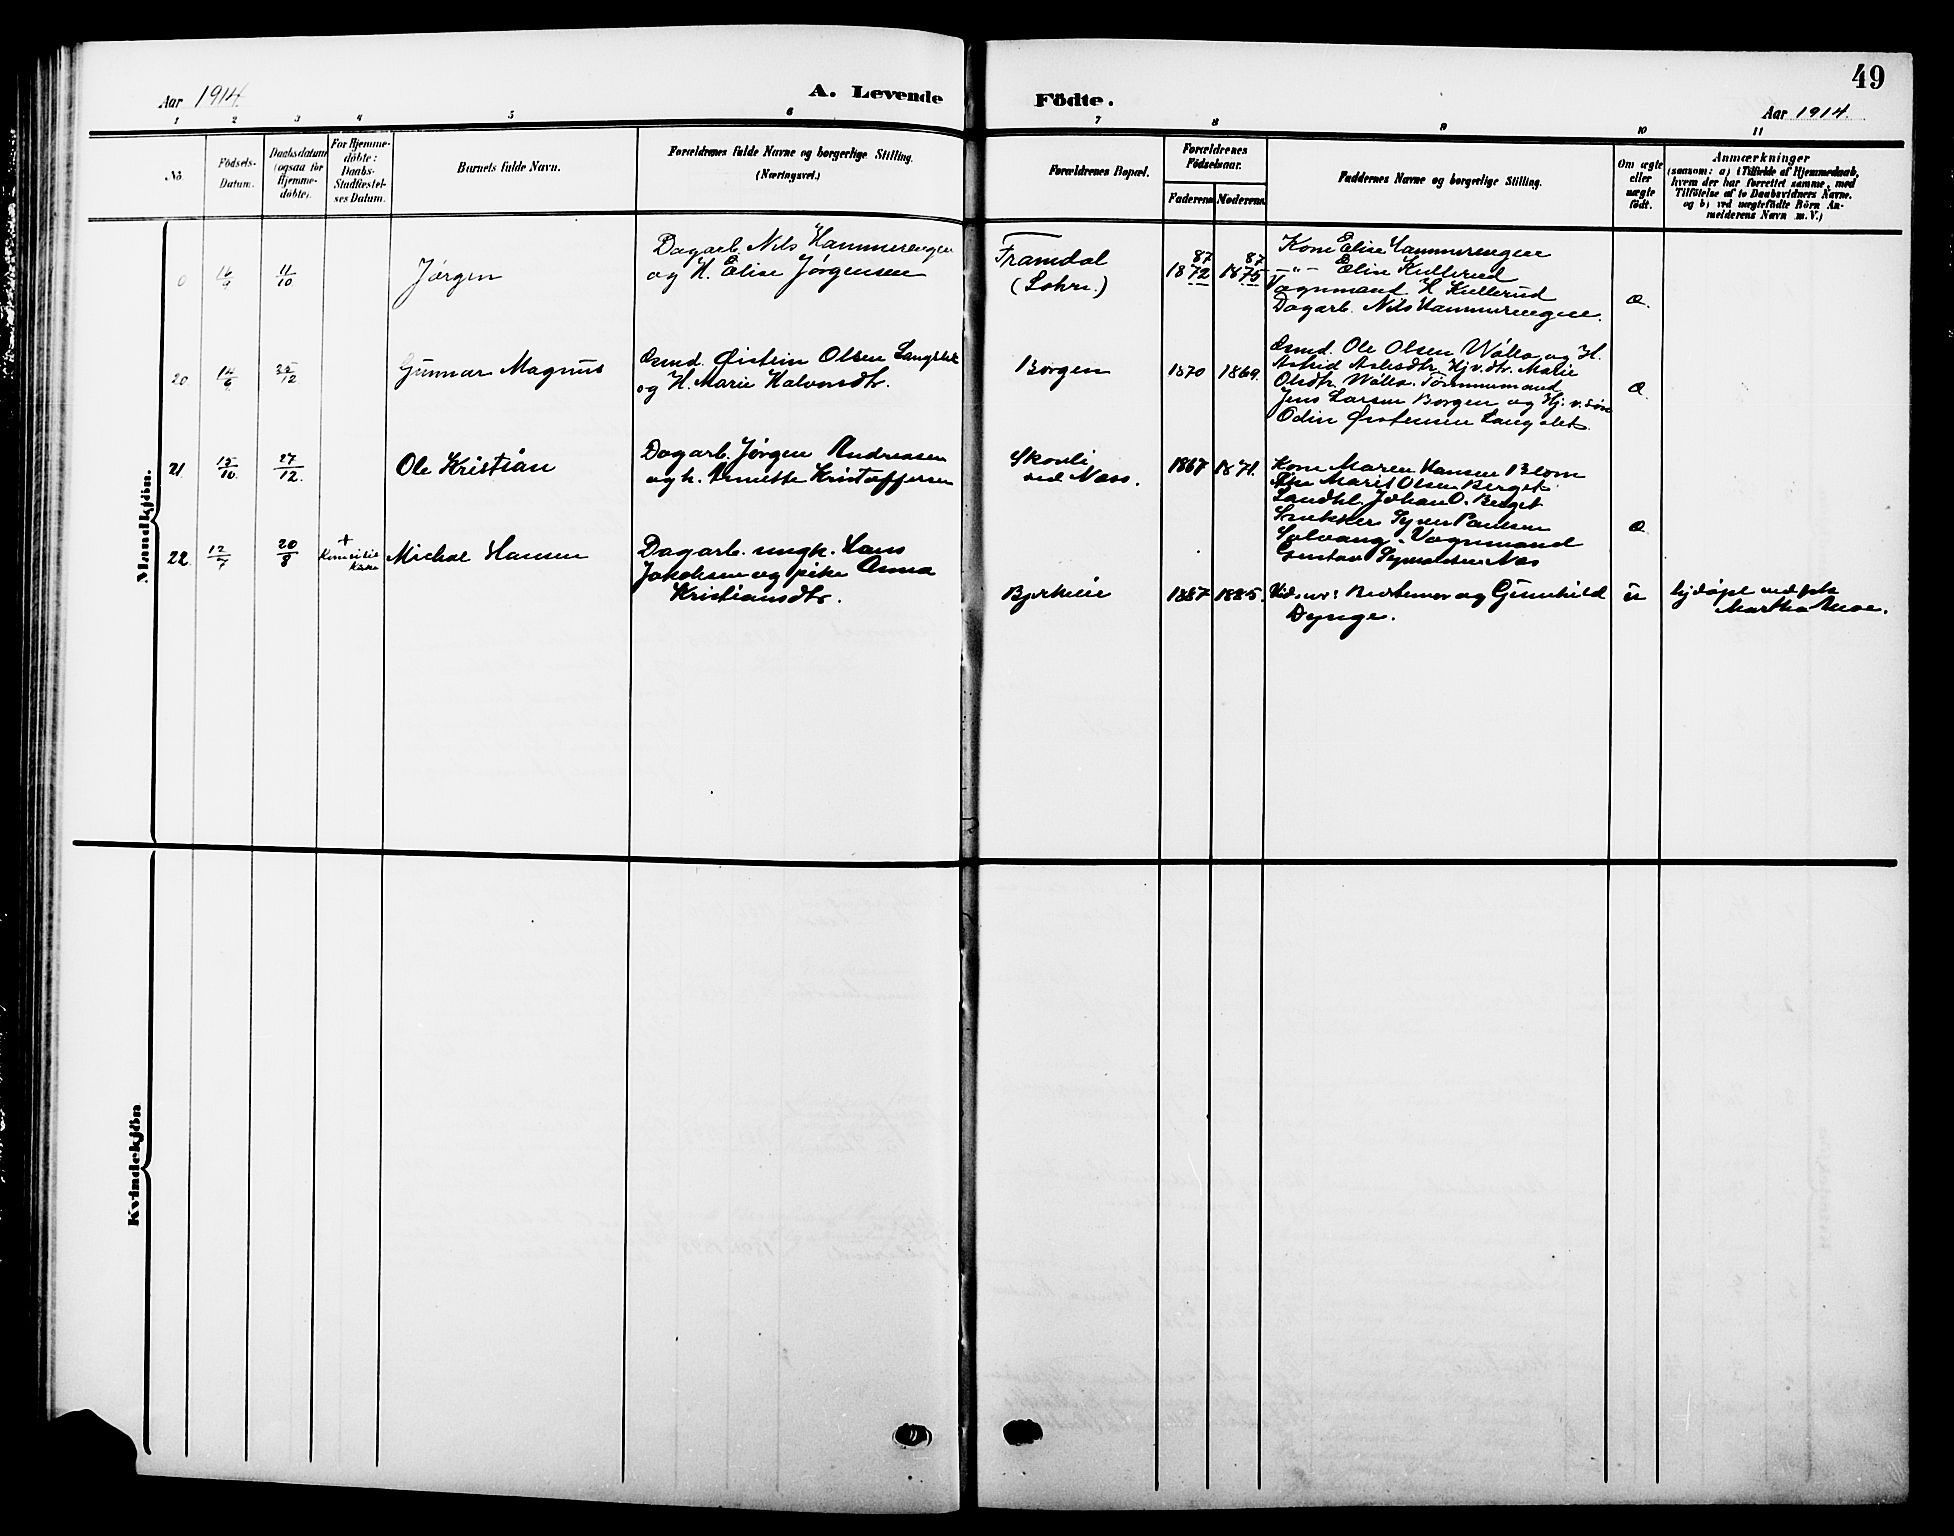 49
Aar 1914.
A. Levende Födte.
Aar 1914.
1 2 3 4 5 6 7 8 9 10 11
No.
Födsels-
Datum.
Daabsdatum
(ogsaa for
Hjemme-
döbte).
For Hjemme-
döbte:
Daabs-
Stadfæstel-
ses Datum.
Barnets fulde Navn.
Forældrenes fulde Navne og borgerlige Stilling.
(Næringsvei.)
Forældrenes Bopæl.
Forældrenes
Födselsaar.
Faderens Moderens
Faddernes Navne og borgerlige Stilling.
Om ægte
eller
uægte
födt.
Anmærkninger
(saasom: a) i Tilfælde af Hjemmedaab,
hvem der har forrettet samme, med
Tilföielse af to Daabsvidners Navne.
og b) ved uægtefödte Börn An-
melderens Navn m. V.)
Mandkjön.
0
11/10
Jørgen
Dagarb. Nils Hammerengen
og H. Elise Jørgensen
Framdal
87 87
1872 1875
Kone Elise Hammerengen
-"- Elise Kullerud
Vognmand H. Kullerud
Dagarb. Nils Hammerengen.
æ.
20
14/6
Gunnar Magnus
Øistein Olsen
og H. Marie Halvorsdtr.
Borgen
1870 1869.
Ole Olsen og H.
Astrid Hj.v.dtr. Marie
Olsdtr. Tømmermand
Jens Larsen Borgen og Hj.v. søn
Odin
æ.
21
15/10
27/12.
Ole Kristian
Dagarb. Jørgen Andreasen
og h. Kristoffersen
Skovli
ved Næss.
1867 1871.
Kone Maren Hansen Blom
Marit Olsen Berget
Landhl. Johan O. Berget
Snekker Syver Paulsen
Solvang. Vognmand
Gustav
æ
22.
12/7
20/8
+
Michal Hansen
Dagarb. ungk. Hans
Jakobsen og pike Anna
Kristiansdtr.
1887 1885.
og Gunhild
Dynge.
u
hjdøpt ved frk
Martha Moe.
Kvindekjön